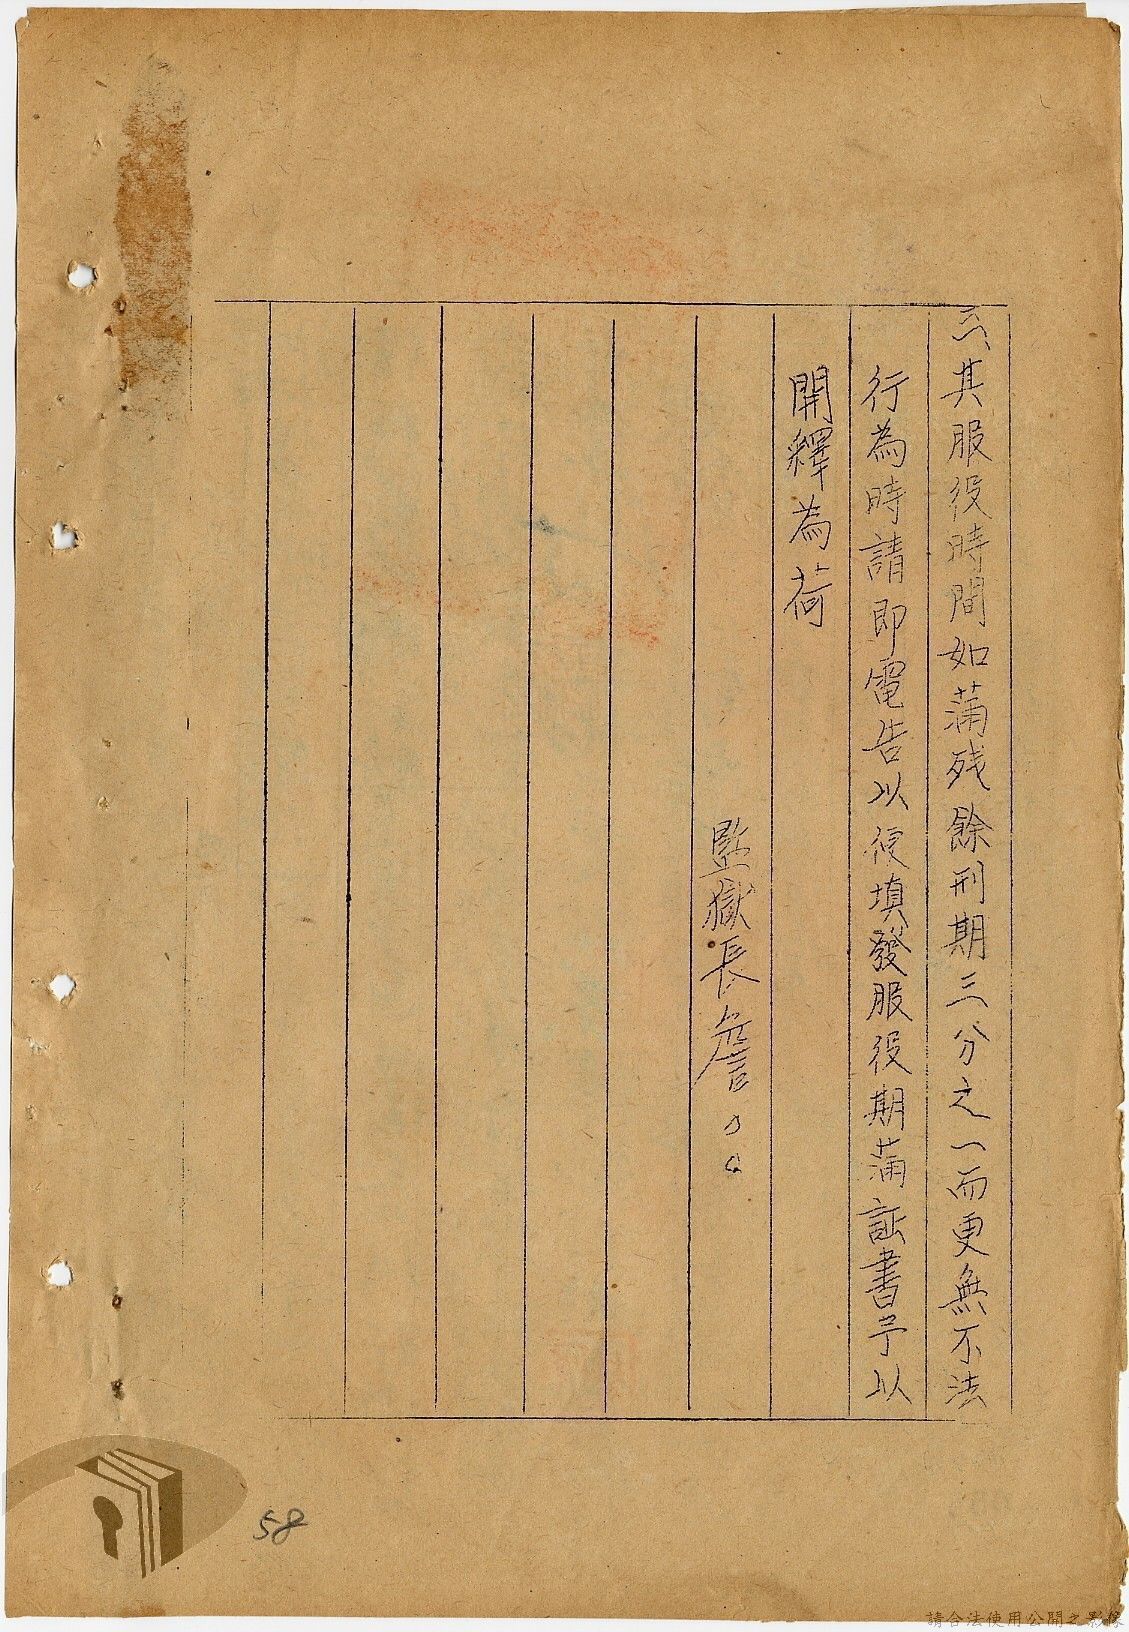 六、其服役時間如滿残餘刑期三分之一而更無不法
行為時請即電告以便填發服役期滿証書予以
開釋為荷
監獄長詹○○
58
請合法使用公開之影像